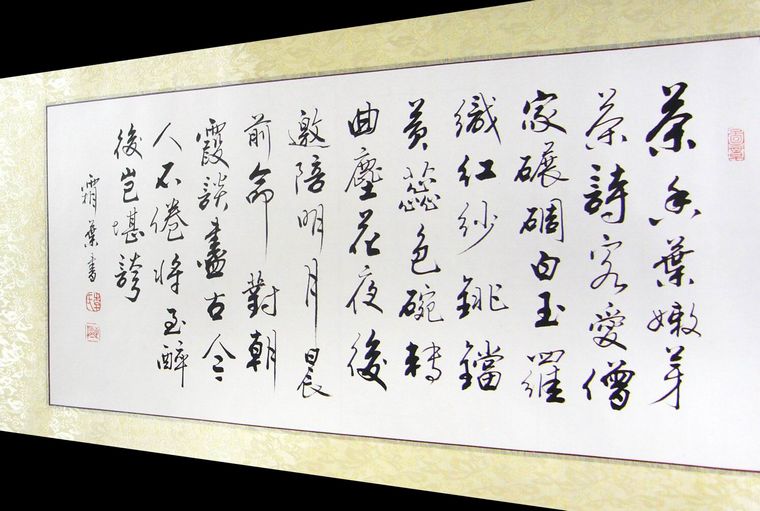 茶香葉嫩芽
慕詩客愛僧
家碾碉白玉羅
織紅紗銚鐺
黃蕊色碗轉
曲塵花夜後
邀陪明月晨
前命對朝
霞談盡古今
人不倦將至醉
後豈堪誇
霜葉書